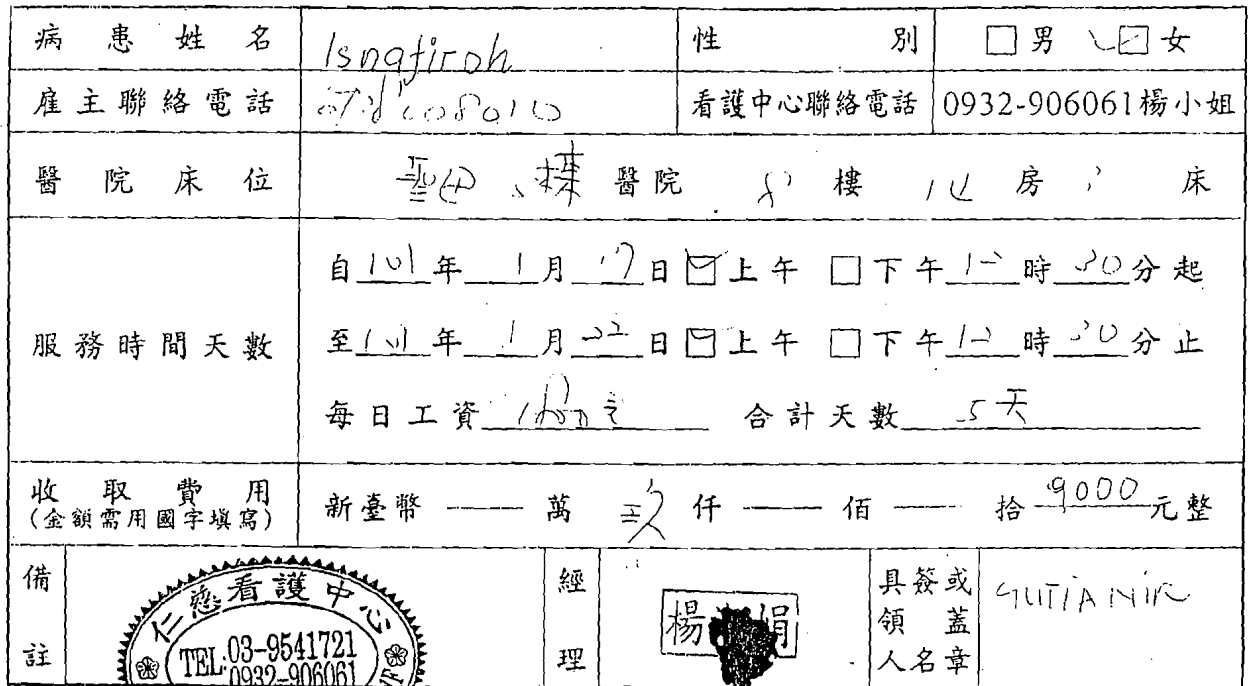 病患姓名 Isnafiroh 性別 □男 ☑女
雇主聯絡電話 看護中心聯絡電話 0932-906061楊小姐
醫院床位 醫院 樓 房 床
服務時間天數
自101年1月17日☑上午 □下午12時30分起
至101年1月22日☑上午 □下午12時30分止
每日工資 合計天數 5天
收取費用
(金額需用國字填寫)
新臺幣——萬玖仟——佰——拾9000元整
備註
仁慈看護中心
TEL:03-9541721
0932-906061
經理
楊 娟
具領人 簽或蓋名章